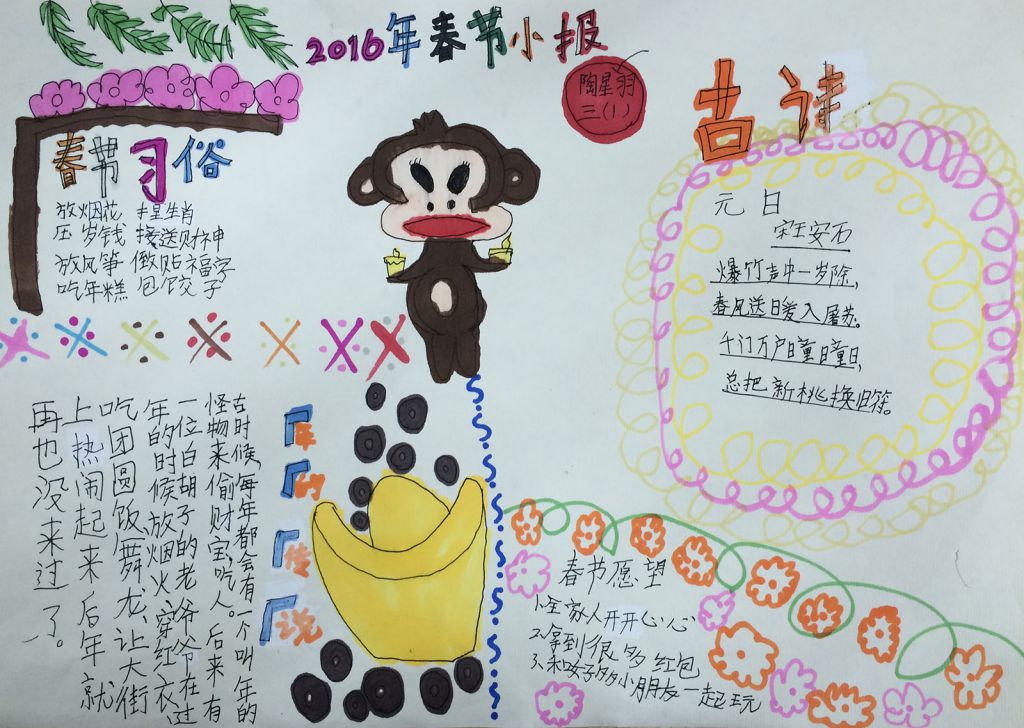 2016年春节小报
陶星羽
三(1)
古诗
春节习俗
放烟花 生肖
压岁钱 接送财神
放风筝 倒贴福字
吃年糕 包饺子
元日
宋王安石
爆竹声中一岁除,
春风送暖入屠苏。
千门万户曈曈日,
总把新桃换旧符。
年的传说
古时候,每年都会有一个叫年的
怪物来偷财宝,吃人。后来有
一位白胡子的老爷爷在过
年的时候放烟火穿红衣,
吃团圆饭,舞龙,让大街
上热闹起来后年就
再也没来过了。
春节愿望
1.全家人开开心心
2.拿到很多红包
3.和多小朋友一起玩